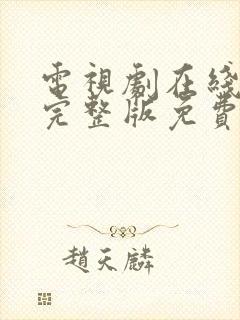 電視劇在綫
完整版免費
趙天麟